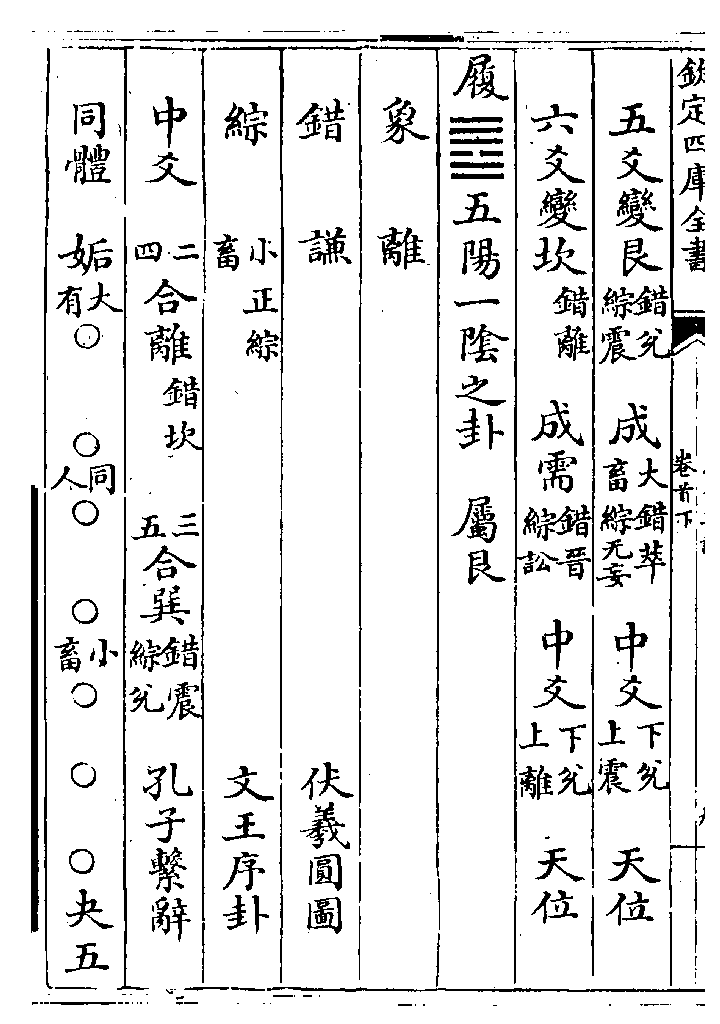 欽定四庫全書
卷首下
五爻變艮 錯兌綜震 成大畜 錯萃綜无妄 中爻 下兌上震 天位
六爻變坎 錯離 成需 錯晉綜訟 中爻 下兌上離 天位
履䷉五陽一陰之卦 屬艮
象 離
錯 謙 伏羲圓圖
綜 小畜 正綜 文王序卦
中爻 二四合離 錯坎 三五合巽 錯震綜兌 孔子繫辭
同體 姤 大有○ ○同人○ ○小畜○ ○ ○夬五